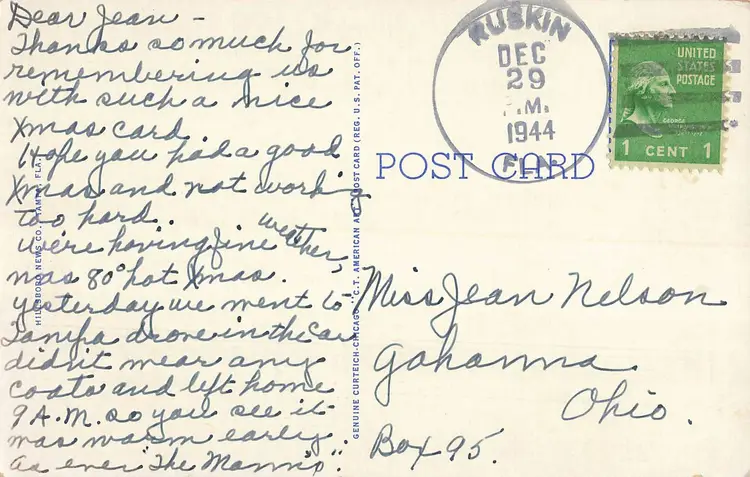 Dear Jean -
Thanks so much for
remembering us
with such a nice
Xmas card.
Hope you had a good
Xmas and not working
too hard.
We're having fine weather,
was 80° hot Xmas.
Yesterday we went to
Tampa drove in the car
didn't wear any
coats and left home
9 A.M. so you see it
was warm early.
As ever "The Mannis".
HILLSBORO NEWS CO., TAMPA, FLA.
GENUINE CURTEICH-CHICAGO "C.T. AMERICAN ART" POST CARD (REG. U.S. PAT. OFF.)
RUSKIN
DEC
29
P.M.
1944
FLA.
UNITED
STATES
POSTAGE
GEORGE
WASHINGTON
1 CENT 1
POST CARD
Miss Jean Nelson
Gahanna
Ohio.
Box 95.